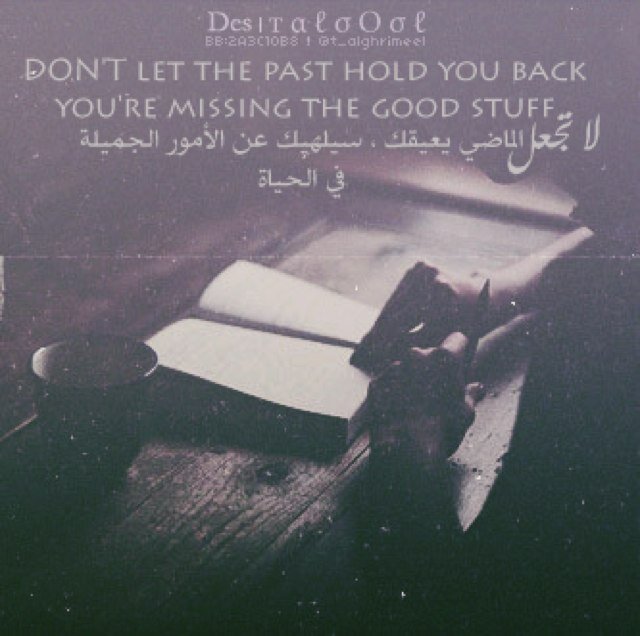 Desιταℓσ𝖮σℓ
BB:2A3C10B8 | @t_alghrimeel
DON'T LET THE PAST HOLD YOU BACK
YOU'RE MISSING THE GOOD STUFF
لا تجعل الماضي يعيقك ، سيلهيك عن الأمور الجميلة
في الحياة